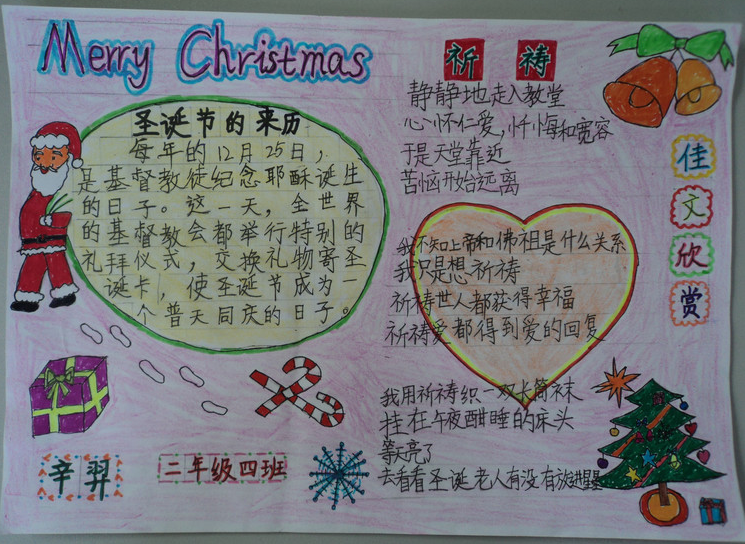 Merry Christmas
圣诞节的来历
每年的12月25日，
是基督教徒纪念耶酥诞生
的日子。这一天，全世界
的基督教会都举行特别的
礼拜仪式，交换礼物寄圣
诞卡，使圣诞节成为一
个普天同庆的日子。
辛羿
二年级四班
祈祷
静静地走入教堂
心怀仁爱，忏悔和宽容
于是天堂靠近
苦恼开始远离
我不知上帝和佛祖是什么关系
我只是想祈祷
祈祷世人都获得幸福
祈祷爱都得到爱的回复
我用祈祷织一双长筒袜
挂在午夜酣睡的床头
等天亮了
去看看圣诞老人有没有放进
佳
文
欣
赏